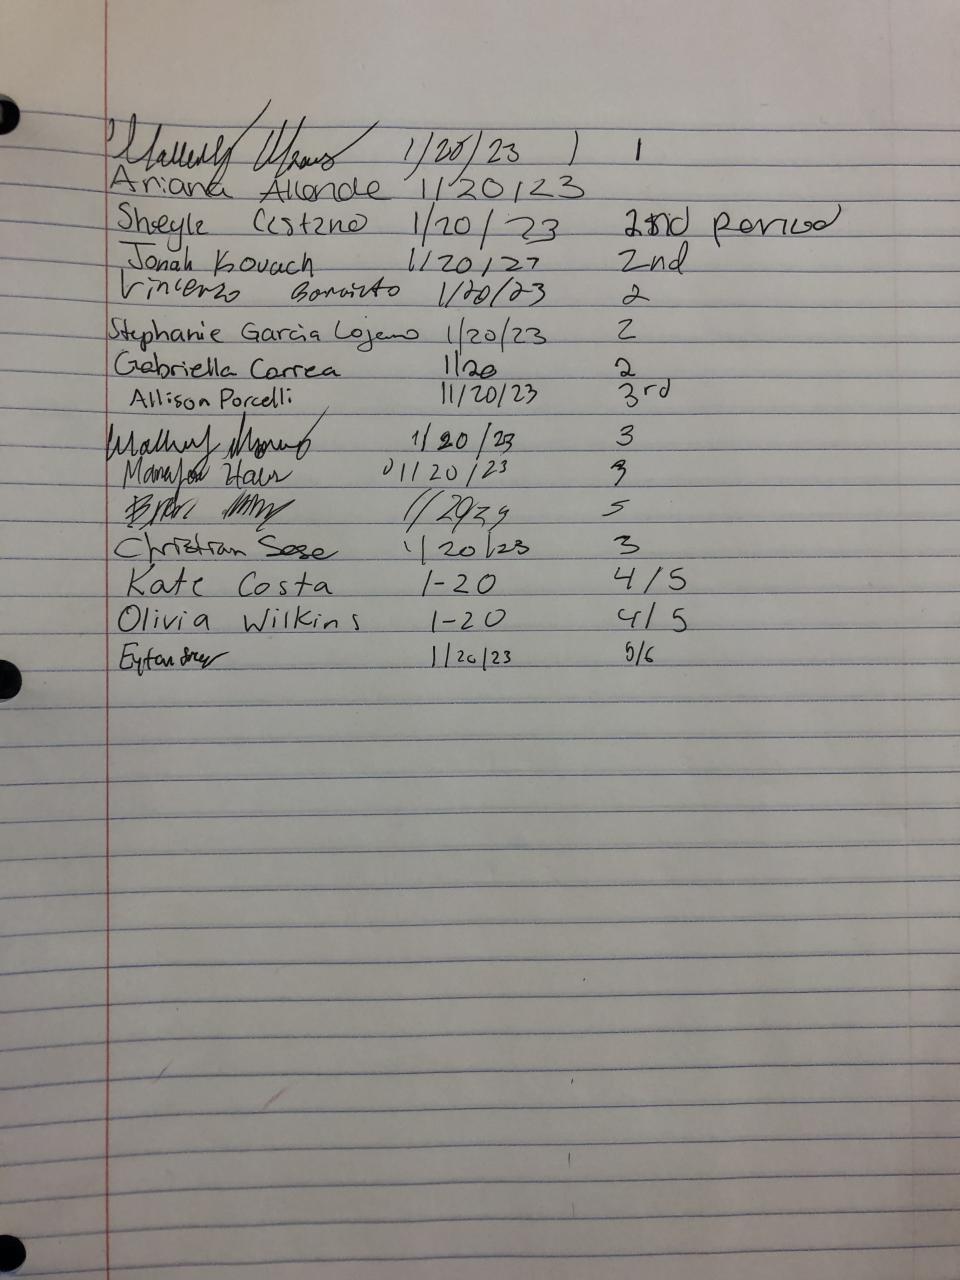 1/20/23 ) 1
Ariana Allende 1/20/23
Sheyla 1/20/23 2nd period
Jonah Kovach 1/20/27 2nd
Vincenzo 1/20/23 2
Stephanie Garcia Lojano 1/20/23 2
Gabriella Correa 1/20 2
Allison Porcelli 11/20/23 3rd
1/20/23 3
1/20/23 3
5
Christian Sose 1/20/23 3
Kate Costa 1-20 4/5
Olivia Wilkins 1-20 4/5
Eytan 1/20/23 5/6